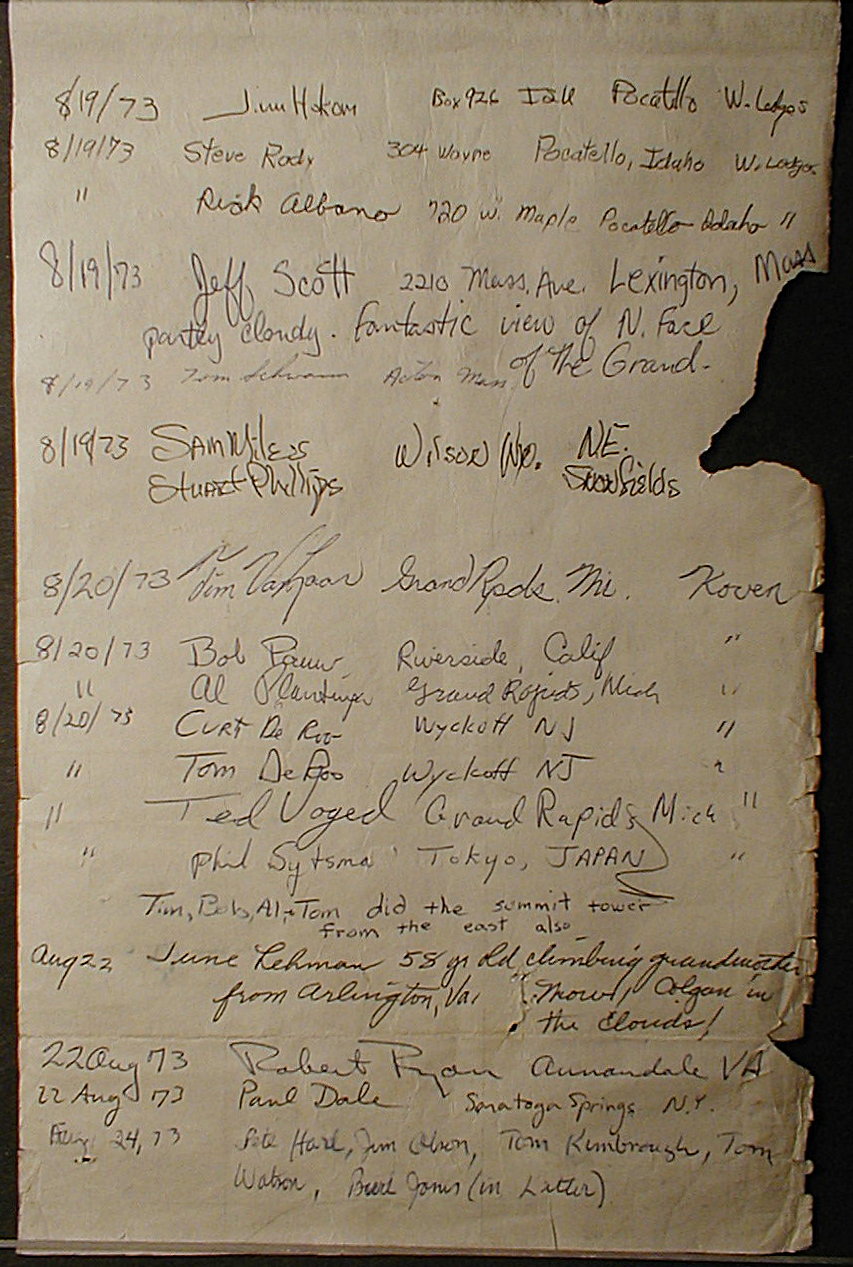 8/19/73 Jim Hokom Box 926 ISU Pocatello W. Ledges
8/19/73 Steve Rody 304 Wayne Pocatello, Idaho W. Ledges
" Rick Albano 720 W. Maple Pocatello Idaho "
8/19/73 Jeff Scott 2210 Mass. Ave. Lexington, Mass
partly cloudy. Fantastic view of N. Face
of the Grand.
8/19/73 Tom Schwamm Acton Mass
8/19/73 Sam Miless Wilson Wyo. N.E.
Stuart Phillips Snowfields
8/20/73 Tim Grand Rpds. Mi. Koven
8/20/73 Bob Riverside, Calif "
" Al Plantinga Grand Rapids, Mich "
8/20/73 Curt De Roo Wyckoff NJ "
" Tom De Roo Wyckoff NJ "
" Ted Voged Grand Rapids Mich "
" Phil Sytsma Tokyo, JAPAN "
Tim, Bob, Al, + Tom did the summit tower
from the east also
Aug 22 June Lehman 58 yr old climbing grandmother
from Arlington, Va. in
the clouds!
22 Aug 73 Robert Ryan Annandale VA
22 Aug 73 Paul Dale Saratoga Springs N.Y.
Aug 24, 73 Pete Jim Olson, Tom Kimbrough, Tom
Watson, Jones (in Litter)